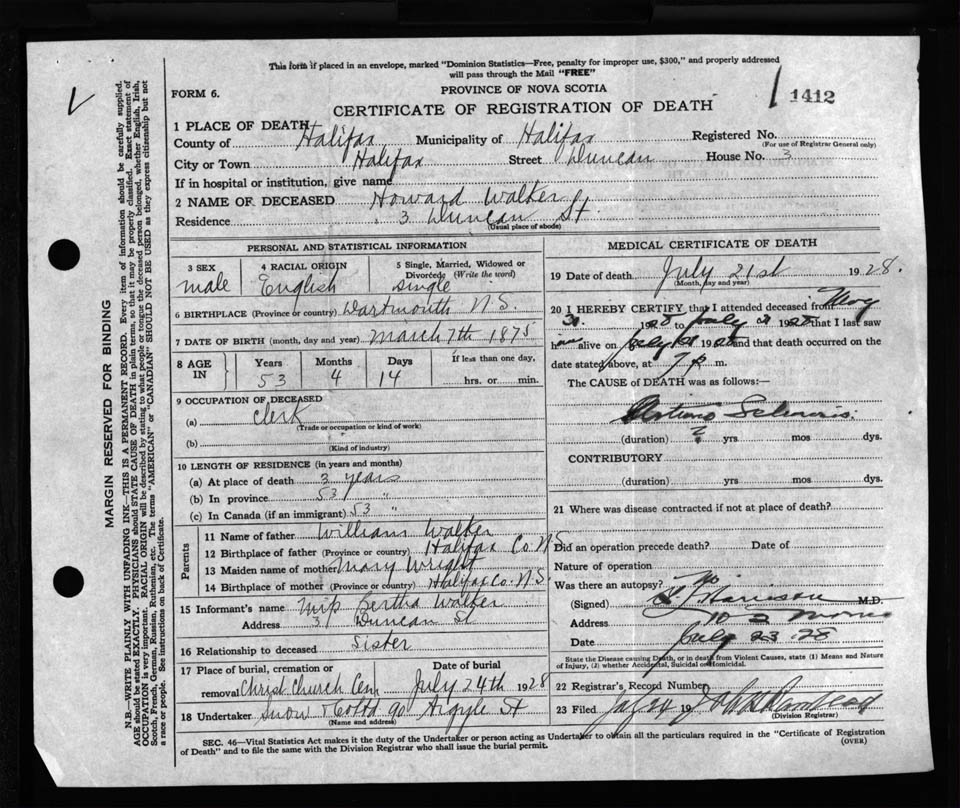 This form if placed in an envelope, marked "Dominion Statistics—Free, penalty for improper use, $300," and properly addressed
will pass through the Mail "FREE"
FORM 6.
PROVINCE OF NOVA SCOTIA
CERTIFICATE OF REGISTRATION OF DEATH
1412
1 PLACE OF DEATH
County of Halifax Municipality of Halifax Registered No.
(For use of Registrar General only)
City or Town Halifax Street Duncan House No. 3
If in hospital or institution, give name
2 NAME OF DECEASED Howard Walker
Residence 3 Duncan St.
(Usual place of abode)
PERSONAL AND STATISTICAL INFORMATION
3 SEX 4 RACIAL ORIGIN 5 Single, Married, Widowed or
Divorced (Write the word)
male English single
6 BIRTHPLACE (Province or country) Dartmouth N.S.
7 DATE OF BIRTH (month, day and year) March 7th 1875
8 AGE IN Years Months Days If less than one day,
53 4 14 hrs. or min.
9 OCCUPATION OF DECEASED
(a) Clerk
(Trade or occupation or kind of work)
(b)
(Kind of industry)
10 LENGTH OF RESIDENCE (in years and months)
(a) At place of death 3 years
(b) In province 53 "
(c) In Canada (if an immigrant) 53 "
Parents
11 Name of father William Walker
12 Birthplace of father (Province or country) Halifax Co. N.S
13 Maiden name of mother Mary Wright
14 Birthplace of mother (Province or country) Halifax Co. N.S.
15 Informant's name Bertha Walker
Address 3 Duncan St
16 Relationship to deceased Sister
17 Place of burial, cremation or Date of burial
removal Christ Church Cem July 24th 1928
18 Undertaker Snow & Co Ltd 90 Argyle St
(Name and address)
MEDICAL CERTIFICATE OF DEATH
19 Date of death July 21st 1928.
(Month, day and year)
20 I HEREBY CERTIFY, that I attended deceased from May
1928 to July 1928 that I last saw
h alive on July 19 and that death occurred on the
date stated above, at 7 p m.
The CAUSE of DEATH was as follows:—
Arterio Sclerosis.
(duration) ? yrs mos dys.
CONTRIBUTORY
(duration) yrs. mos. dys.
21 Where was disease contracted if not at place of death?
Did an operation precede death? Date of
Nature of operation
Was there an autopsy? No
(Signed) M.D.
Address
Date July 23 28
State the Disease causing Death, or in death from Violent Causes, state (1) Means and Nature
of Injury, (2) whether Accidental, Suicidal or Homicidal.
22 Registrar's Record Number
23 Filed 19
(Division Registrar)
SEC. 46—Vital Statistics Act makes it the duty of the Undertaker or person acting as Undertaker to obtain all the particulars required in the "Certificate of Registration
of Death" and to file the same with the Division Registrar who shall issue the burial permit.
(OVER)
MARGIN RESERVED FOR BINDING
N.B.—WRITE PLAINLY WITH UNFADING INK—THIS IS A PERMANENT RECORD. Every item of information should be carefully supplied.
AGE should be stated EXACTLY. PHYSICIANS should STATE CAUSE OF DEATH in plain terms, so that it may be properly classified. Exact statement of
OCCUPATION is very important. RACIAL ORIGIN will be described by stating to what people or tongue the deceased person belonged, whether English, Irish,
Scotch, French, German, Russian, Ruthenian, etc. The terms "AMERICAN" or "CANADIAN" SHOULD NOT BE USED as they express citizenship but not
a race or people. See instructions on back of Certificate.